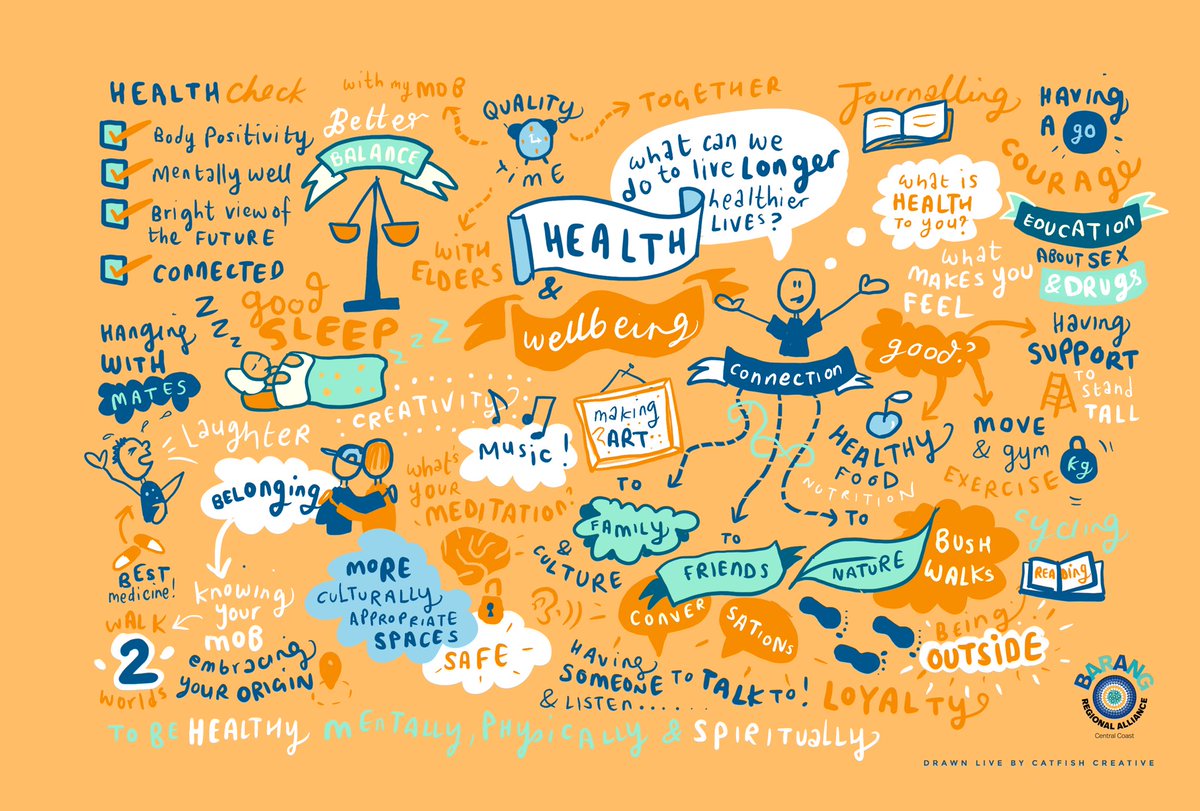 HEALTH check
Body Positivity
Mentally well
Bright view of
the FUTURE
CONNECTED
Better
BALANCE
with my MOB
QUALITY
TIME
TOGETHER
WITH
ELDERS
what can we
do to live LONGER
healthier
LIVES?
HEALTH
&
wellbeing
Journalling
HAVING
A
go
COURAGE
what is
HEALTH
TO YOU?
what
MAKES YOU
FEEL
good?
EDUCATION
ABOUT SEX
& DRUGS
Having
SUPPORT
TO
stand
TALL
HEALTHY
FOOD
NUTRITION
MOVE
& gym
EXERCISE
Kg
cycling
READING
good
SLEEP
Z Z Z Z
Z Z Z Z
HANGING
WITH
MATES
Laughter
BEST
medicine!
CREATIVITY?
MUSIC!
making
ART
CONNECTION
TO
FAMILY
&
CULTURE
TO
FRIENDS
TO
NATURE
BUSH
WALKS
BEING
OUTSIDE
BELONGING
knowing
your
MOB
WALK
2
worlds
embracing
YOUR ORIGIN
what's
YOUR
MEDITATION?
MORE
CULTURALLY
APPROPRIATE
SPACES
SAFE
CONVER
SATIONS
HAVING
SOMEONE TO TALK TO!
& LISTEN......
LOYALTY
TO BE HEALTHY MENTALLY, PHYSICALLY & SPIRITUALLY
BARANG
REGIONAL ALLIANCE
Central Coast
DRAWN LIVE BY CATFISH CREATIVE